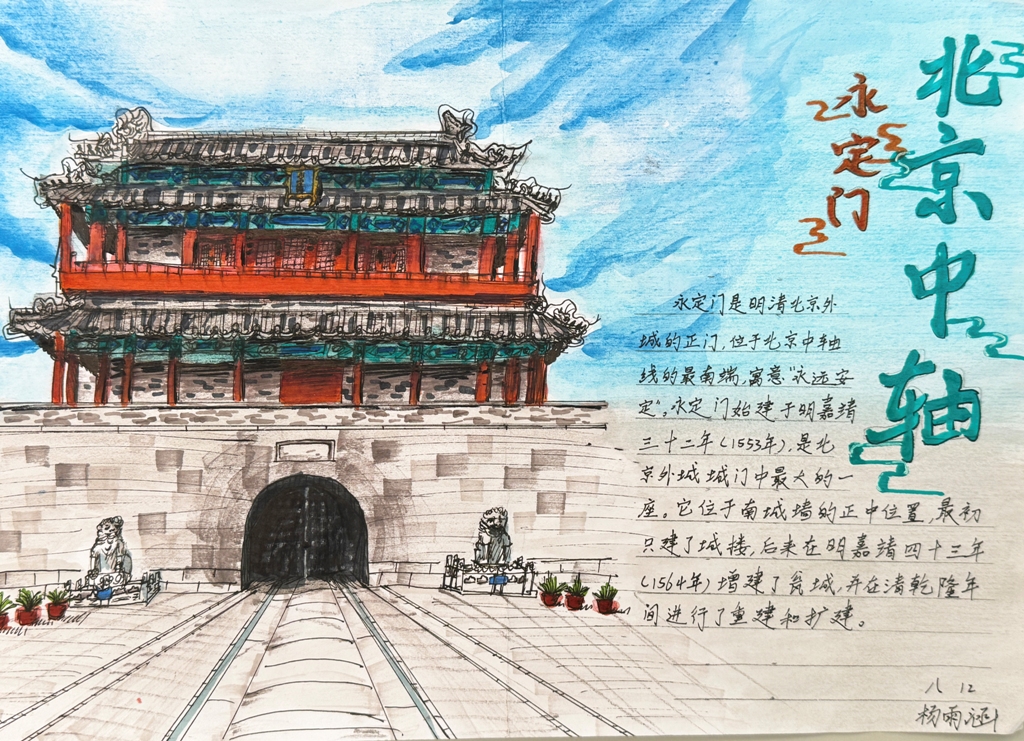 北京中轴
永定门
永定门是明清北京外
城的正门,位于北京中轴
线的最南端,寓意“永远安
定”。永定门始建于明嘉靖
三十二年(1553年),是北
京外城城门中最大的一
座。它位于南城墙的正中位置,最初
只建了城楼,后来在明嘉靖四十三年
(1564年)增建了瓮城,并在清乾隆年
间进行了重建和扩建。
八 12
杨雨涵